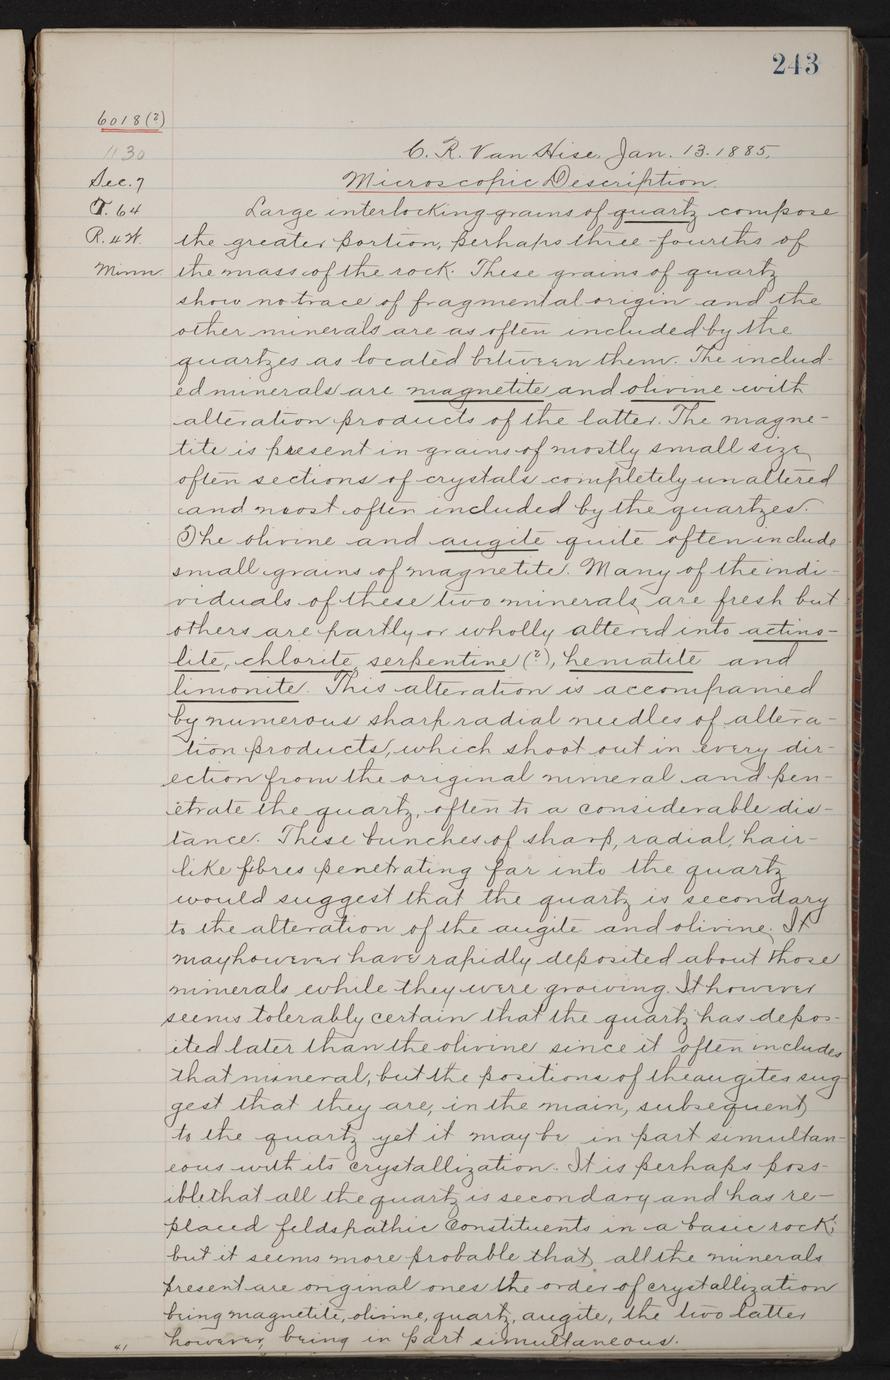 243
6018(?)
1130
C. R. Van Hise, Jan. 13. 1885.
Sec. 7
Microscopic Description.
T. 64
Large interlocking grains of quartz compose
R. 4 W.
the greater portion, perhaps three-fourths of
Minn.
the mass of the rock. These grains of quartz
show no trace of fragmental origin and the
other minerals are as often included by the
quartzes as located between them. The includ-
ed minerals are magnetite and olivine with
alteration products of the latter. The magne-
tite is present in grains of mostly small size,
often sections of crystals completely unaltered
and most often included by the quartzes.
The olivine and augite quite often include
small grains of magnetite. Many of the indi-
viduals of these two minerals are fresh but
others are partly or wholly altered into actino-
lite, chlorite, serpentine (?), hematite and
limonite. This alteration is accompanied
by numerous sharp radial needles of altera-
tion products, which shoot out in every dir-
ection from the original mineral and pen-
etrate the quartz, often to a considerable dis-
tance. These bunches of sharp, radial, hair-
like fibres penetrating far into the quartz
would suggest that the quartz is secondary
to the alteration of the augite and olivine. It
may however have rapidly deposited about those
minerals while they were growing. It however
seems tolerably certain that the quartz has depos-
ited later than the olivine since it often includes
that mineral, but the positions of the augites sug-
gest that they are, in the main, subsequent
to the quartz yet it may be in part simultan-
eous with its crystallization. It is perhaps poss-
ible that all the quartz is secondary and has re-
placed feldspathic constituents in a basic rock;
but it seems more probable that all the minerals
present are original ones the order of crystallization
being magnetite, olivine, quartz, augite, the two latter
however, being in part simultaneous.
41